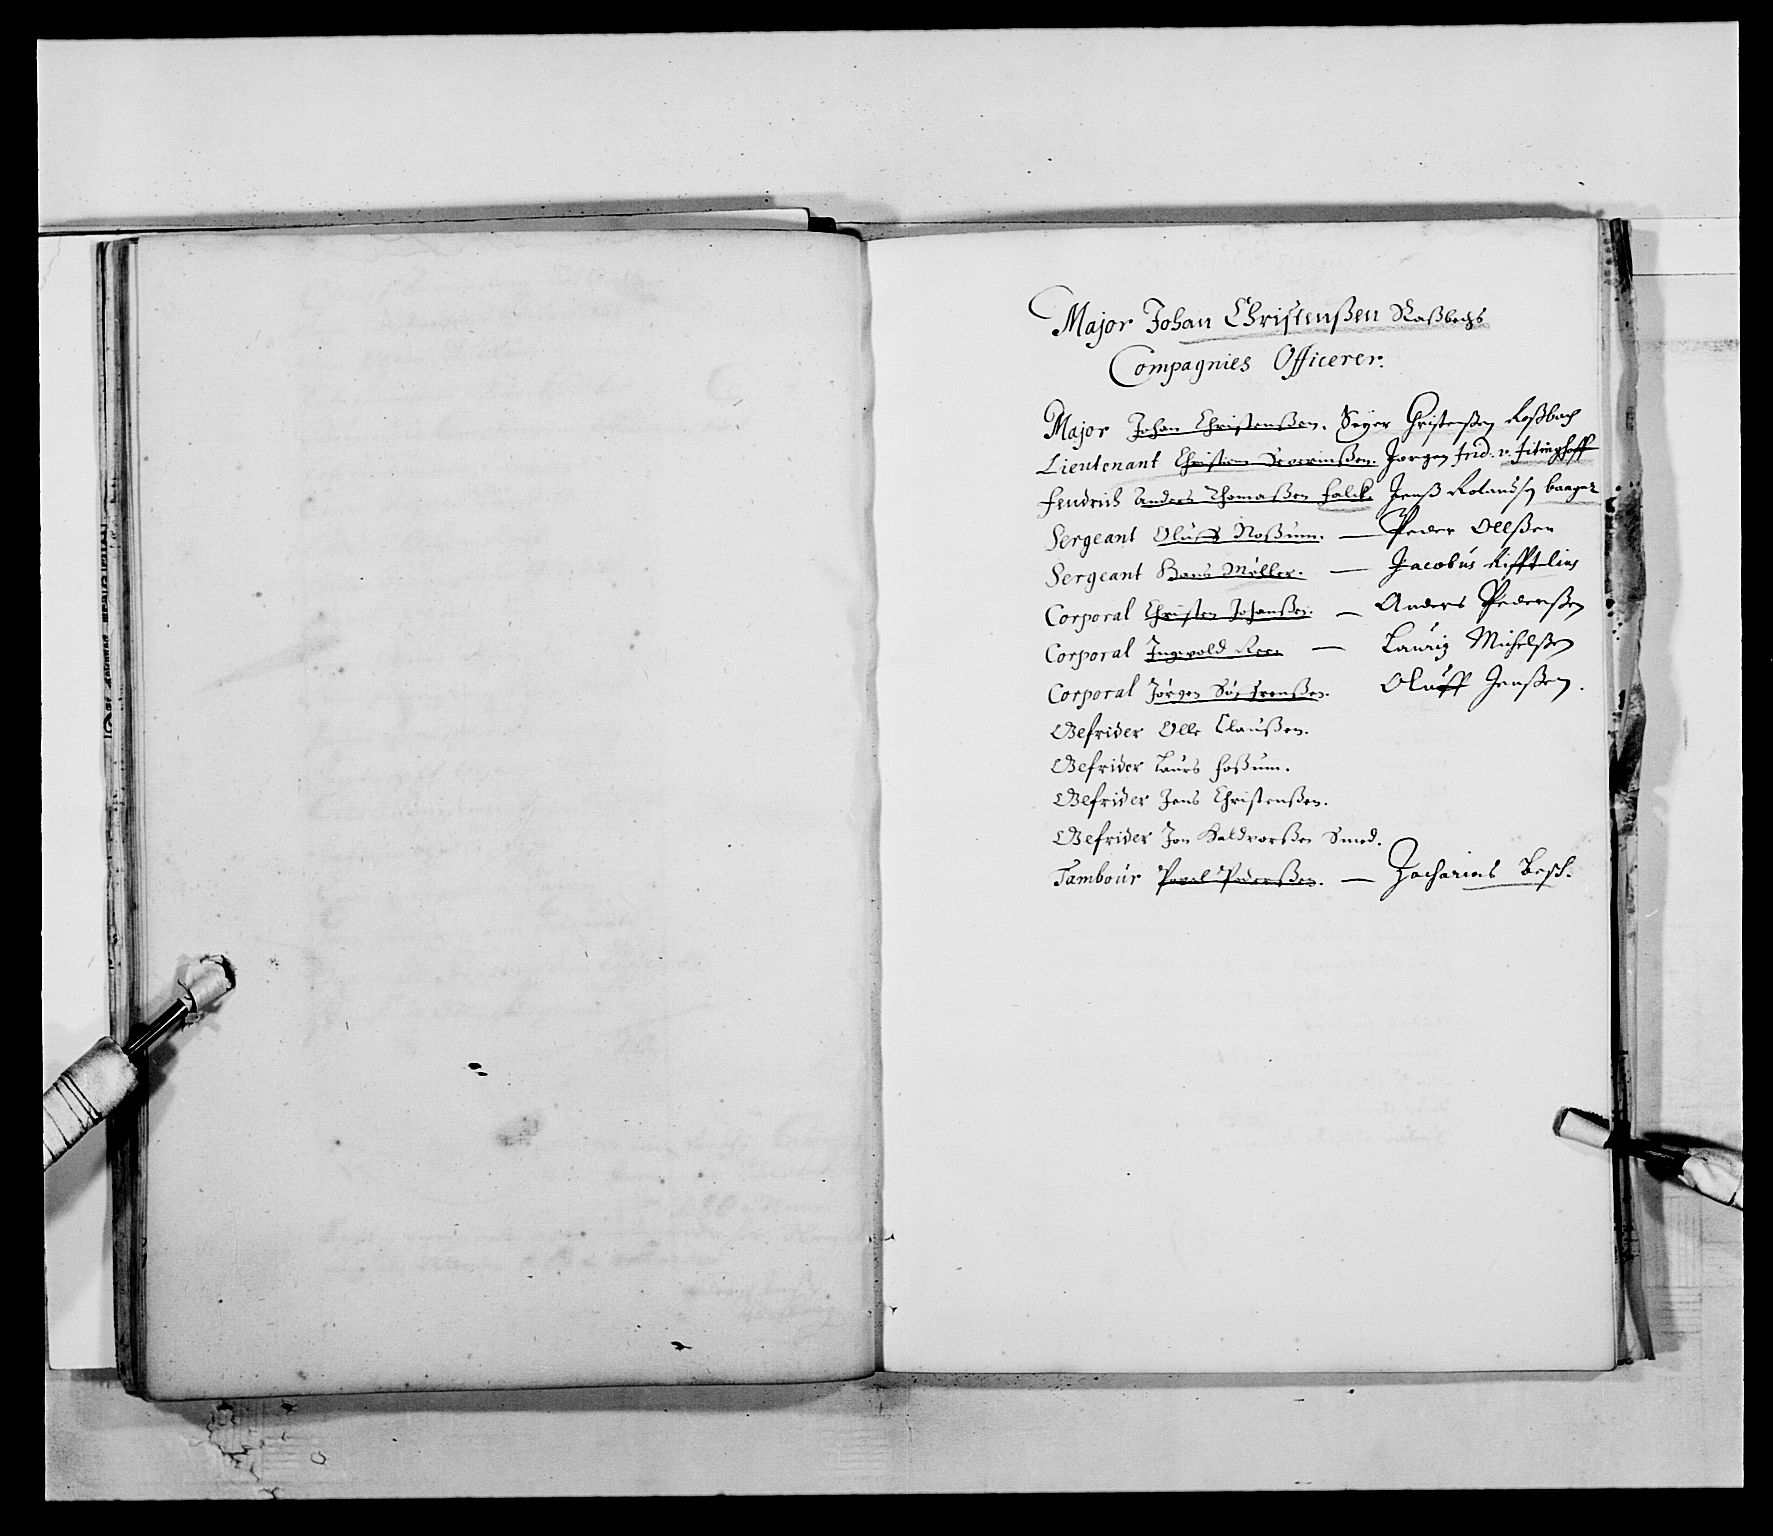 Major Johan Christenßen Raßbechs
Compagnies Officerer.
Major Johan Christenßen. Seyer Christenßen Roßbach
Lieutenant Christian Severinßen. Jørgen frid. v. fitinghoff
fendrich Anders Thomaßen falck. Jenß Rolandsen baager
Sergeant Oluff Roßum. — Peder Ollßen
Sergeant Hans Møller. — Jacobus
Corporal Christen Johanßen. — Anders Pederßen
Corporal Ingevold Roe. — Lauriz Michelßen
Corporal Jørgen Oluff Jenßen.
Gefrider Olle Claußen.
Gefrider Laurs foßum.
Gefrider Jens Christenßen.
Gefrider Jon Haldvorßen Smed.
Tambour Povel Pederßen. — Zacharias Besch.